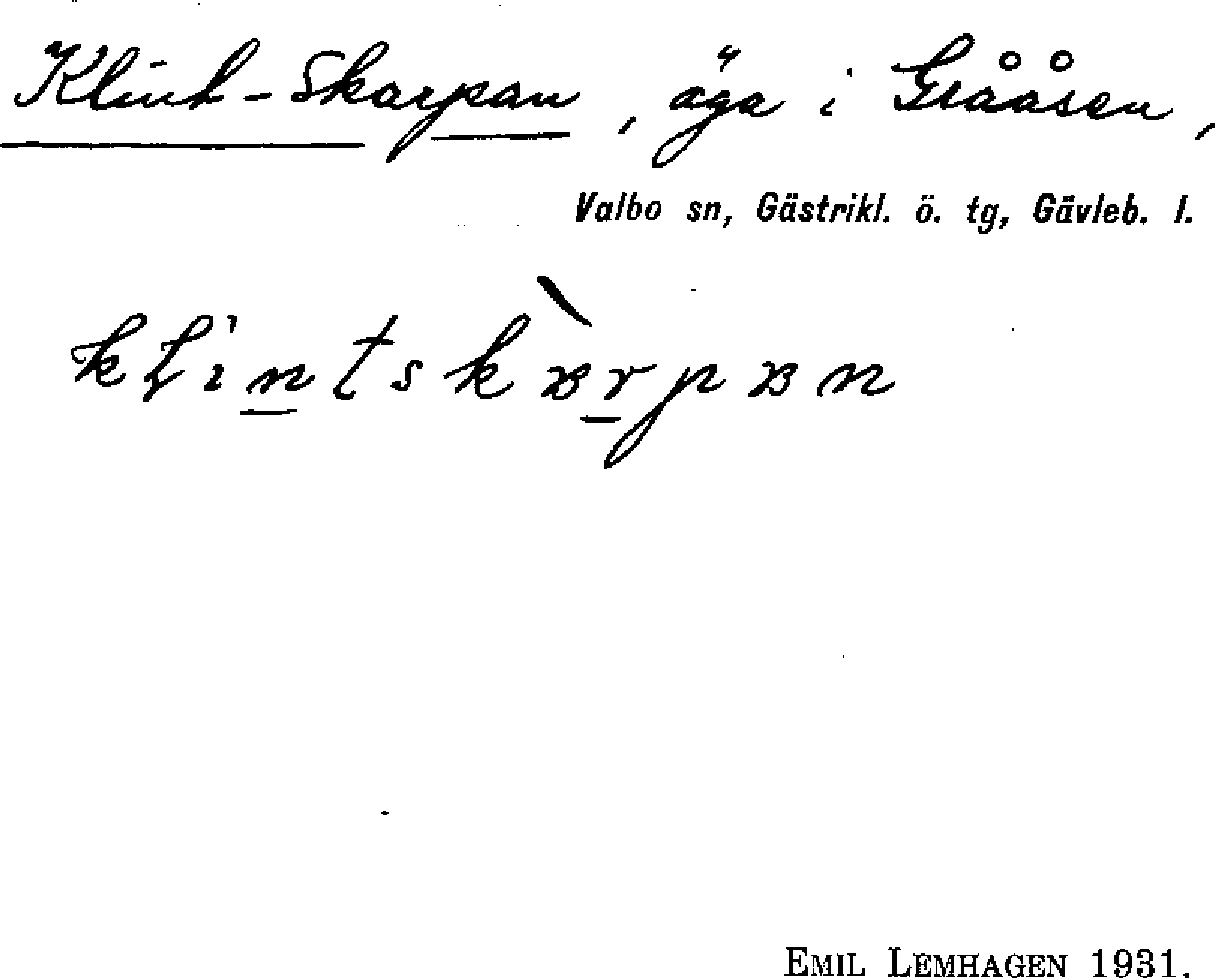 Klint-Skarpan, äga i Grååsen,
Valbo sn, Gästrikl. ö. tg, Gävleb. l.
EMIL LEMHAGEN 1931.